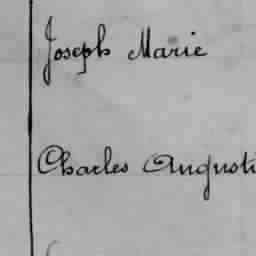 Joseph Marie
Charles Augusti